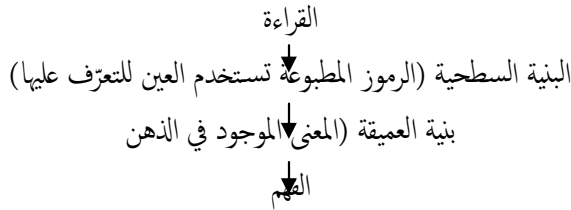 القراءة
البنية السطحية (الرموز المطبوعة تستخدم العين للتعرّف عليها)
بنية العميقة (المعنى الموجود في الذهن
الفهم